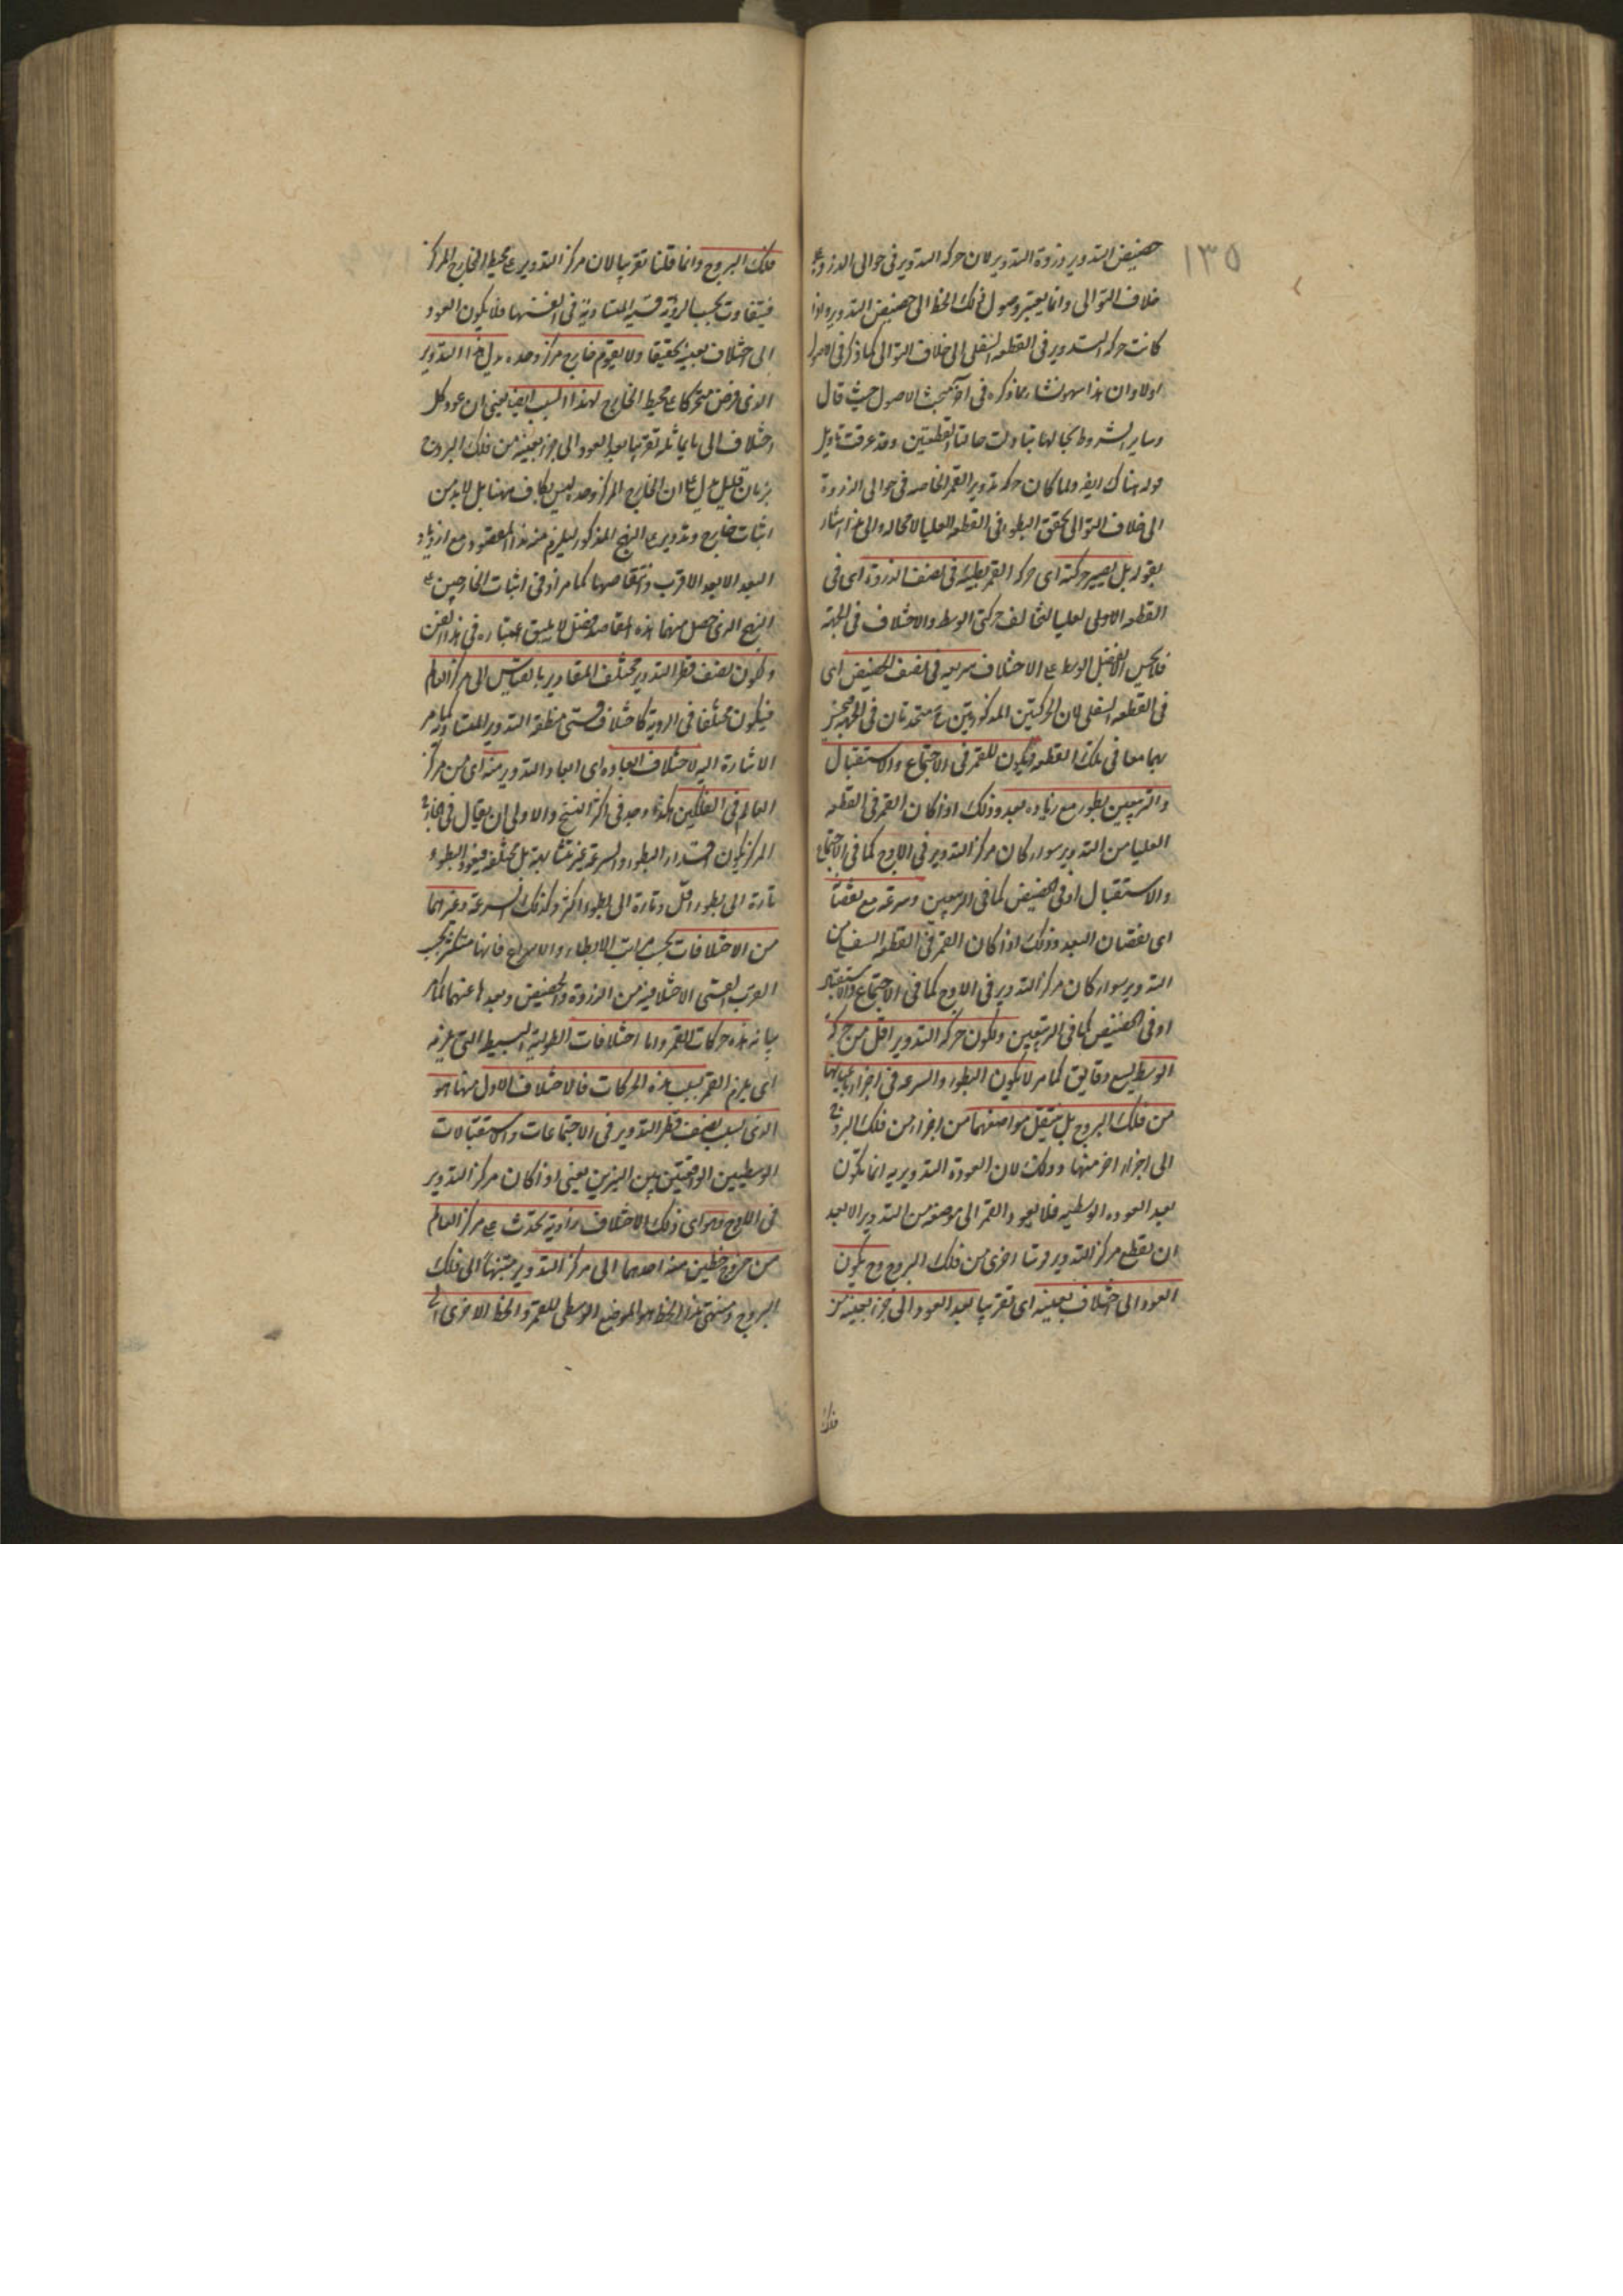 ١٣٥
حضيض التدوير وذروة التدوير لان حركة التدوير فى حوالى الذروة على
خلاف التوالى وانما يعتبر وصول ذلك الخط الى حضيض التدوير اذا
كانت حركة التدوير فى القطعه السفلى الى خلاف التوالى كما ذكر فى الاصول
اولا وان هذا سهو نشاء مما ذكره فى آخر مبحث الاصول حيث قال
وساير الشروط بحالها تبادلت حالتا القطعتين وقد عرفت تاويل
قوله هناك ايضا ولما كان حركة تدوير القمر الخاصه فى حوالى الذروة
الى خلاف التوالى تحقق البطوء فى القطعه العليا لا محاله والى هذا اشار
بقوله بل يصير حركته اى حركه القمر بطيئة فى نصف الذروة اى فى
القطعه الاولى العليا لتخالف حركتى الوسط والاختلاف فى الجهة
فلا يحس الا بفضل الوسط على الاختلاف سريعه فى نصف الحضيض اى
فى القطعه السفلى لان الحركتين المذكورتين متحدتان فى الجهة
بهما معا فى تلك القطعه فيكون للقمر فى الاجتماع والاستقبال
والتربيعين بطوء مع زياده بعد وذلك اذا كان القمر فى القطعه
العليا من التدوير سواء كان مركز التدوير فى الاوج كما فى الاجتماع
والاستقبال او فى الحضيض كما فى التربيعين وسرعه مع نقصان
اى نقصان البعد وذلك اذا كان القمر فى القطعه السفلى من
التدوير سواء كان مركز التدوير فى الاوج كما فى الاجتماع والاستقبال
او فى الحضيض كما فى التربيعين ولكون حركة التدوير اقل من حركة
الوسط بسبع دقايق كما مر لا يكون البطوء والسرعه فى اجزاء باعيانها
من فلك البروج بل ينتقل مواضعهما من اجزاء من فلك البروج
الى اجزاء اخر منها وذلك لان العودة التدويريه انما تكون
بعد العوده الوسطيه فلا يعود القمر الى موضعه من التدوير الا بعد
ان يقطع مركز التدوير قوسا اخرى من فلك البروج وح يكون
العود الى اختلاف بعينه اى تقريبا بعد العود الى جزء بعينه من
فلك
فلك البروج وانما قلنا تقريبا لان مركز التدوير على محيط الخارج المركز
فيتفاوت بحسب الرؤية قسيه المتساوية فى انفسها فلا يكون العود
الى اختلاف بعينه تحقيقا ولا يقوم خارج مركز وحده بدل هذا التدوير
الذى فرض متحركا على محيط الخارج لهذا السبب ايضا يعنى ان عود كل
اختلاف الى ما يماثله تقريبا بعد العود الى جزء بعينه من فلك البروج
بزمان قليل على ان الخارج المركز وحده ليس بكاف ههنا بل لا بد من
اثبات خارج وتدوير على النهج المذكور ليلزم منه هذا المقصود مع ازدياد
البعد الابعد الاقرب وانتقاصها كما مر او فى اثبات الخارجين على
النهج الذى حصل منها هذه المقاصد لا يليق اعتباره فى هذا الفن
وكون نصف قطر التدوير مختلف المقادير بالقياس الى مركز العالم
فيكون مختلفا فى الرؤية كاختلاف قسى منطقة التدوير المتساوية كما مر
الاشارة اليه لاختلاف ابعاده اى ابعاد التدوير منه اى من مركز
العالم فى الفلكين هكذا وجد فى اكثر النسخ والاولى ان يقال فى الخارج
المركز يكون مقدار البطوء والسرعة غير متشابهة بل مختلفه فيعود البطوء
تارة الى بطوء اقل وتارة الى بطوء اكثر وكذلك السرعة وغيرهما
من الاختلافات بحسب مراتب الابطاء والاسراع فانها متكثرة بحسب
القرب القسى الاختلافية من الذروة والحضيض وبعدها عنهما كما مر
بيانه هذه حركات القمر واما اختلافات الطولية البسيط التى تلزمه
اى يلزم القمر بسبب هذه الحركات فالاختلاف الاول منها هو
الذى بسبب نصف قطر التدوير فى الاجتماعات والاستقبالات
الوسطيين الواقعتين بين النيرين يعنى اذا كان مركز التدوير
فى الاوج وهو اى ذلك الاختلاف زاوية تحدث على مركز العالم
من خروج خطين منه احدهما الى مركز التدوير منتهيا الى فلك
البروج ومنتهى هذا الخط هو الموضع الوسطى للقمر والخط الاخر اى